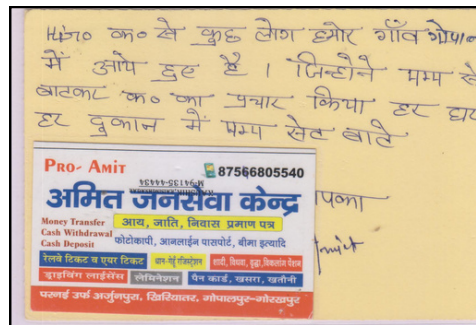 कुछ लोग हमारे गाँव
में आये हुए है । जिन्होने पम्प
बाटकर क० का प्रचार किया हर
हर दुकान में पम्प सेट बाटे
PRO- AMIT
87566805540
94135-44434
अमित जनसेवा केन्द्र
Money Transfer
Cash Withdrawal
Cash Deposit
आय, जाति, निवास प्रमाण पत्र
फोटोकापी, आनलाईन पासपोर्ट, बीमा इत्यादि
रेलवे टिकट व एयर टिकट
धान-गेहूँ रजिस्ट्रेशन
शादी, विधवा, वृद्धा, विकलांग पेंशन
ड्राइविंग लाईसेंस
लेमिनेशन
पैन कार्ड, खसरा, खतौनी
परनई उर्फ अर्जुनपुरा, खिरियातर, गोपालपुर-गोरखपुर